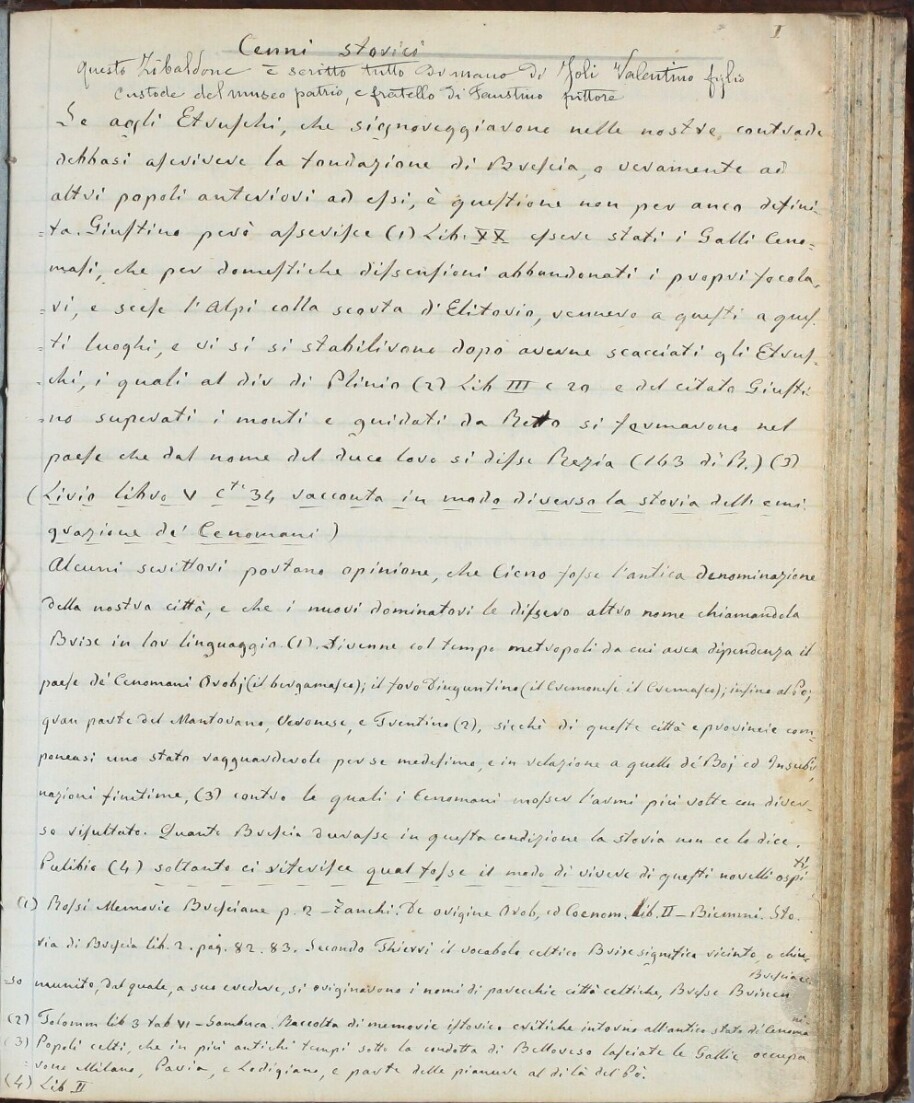 I
Cenni storici
questo Zibaldone è scritto tutto di mano di Joli Valentino figlio
custode del museo patrio, e fratello di Faustino pittore
Se agli Etruschi, che signoreggiarono nelle nostre contrade
debbasi ascrivere la fondazione di Brescia, o veramente ad
altri popoli anteriori ad essi, è questione non per anco defini-
=ta. Giustino però asserisce (1) Lib. XX essere stati i Galli Ceno=
masi, che per domestiche dissensioni abbandonati i proprj focola,
=ri, e scese l'Alpi colla scorta d'Elitovio, vennero a questi a ques,
=ti luoghi, e vi si si stabilirono dopo averne scacciati gli Etrus,
=chi, i quali al dir di Plinio (2) Lib III c 20 e del citato Giusti
=no superati i monti e guidati da Retto si fermarono nel
paese che dal nome del duce loro si disse Rezia (163 di R.) (3)
(Livio libro V C.to 34 racconta in modo diverso la storia dell emi
grazione de' Cenomani)
Alcuni scrittori portano opinione, che Cicno fosse l'antica denominazione
della nostra città, e che i nuovi dominatori le dissero altro nome chiamandola
Brixe in lor linguaggio (1). Divenne col tempo metropoli da cui avea dipendenza il
paese de' Cenomani Orobj (il bergamasco); il foro Diuguntino (il Cremonese il Cremasco); infino al Po;
gran parte del Mantovano, Veronese, e Trentino (2), sicchè di queste città e provincie com-
poneasi uno stato ragguardevole per se medesimo, e in relazione a quelle de' Boj ed Insubri,
nazioni finitime, (3) contro le quali i Cenomani mosser l'armi più volte con diver-
so risultato. Quanto Brescia durasse in questa condizione la storia non ce lo dice.
Pulibio (4) soltanto ci riferisce qual fosse il modo di vivere di questi novelli ospi
ti.
(1) Rossi Memorie Bresciane p. 2 - Zanchi. De origine Orob. ed Coenom. Lib. II - Biemmi. Sto.
ria di Brescia lib. 2. pag. 82. 83. Secondo Thierri il vocabolo celtico Brixe significa vicinto, o chiu,
=so munito, dal quale, a suo credere, si originarono i nomi di parecchie città celtiche, Bresse Brixen
Bresciaec
(2) Tolomm lib 3 tab VI - Sambuca. Raccolta di memorie istorico critiche intorno all'antico stato di Cenoma
ni
(3) Popoli celti, che in più antichi tempi sotto la condotta di Belloveso lasciate le Gallie occupa
=rono Milano, Pavia, e Lodigiano, e parte delle pianure al di là del Pò.
(4) Lib II